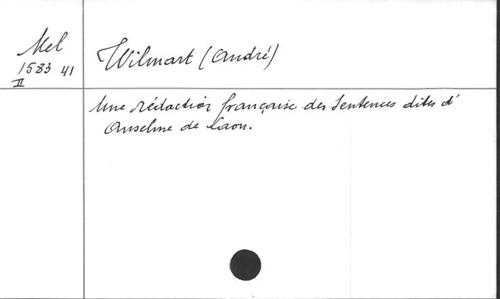 Mel
1583 41
II
Wilmart (André)
Une rédaction française des Sentences dites d'
Anselme de Laon.